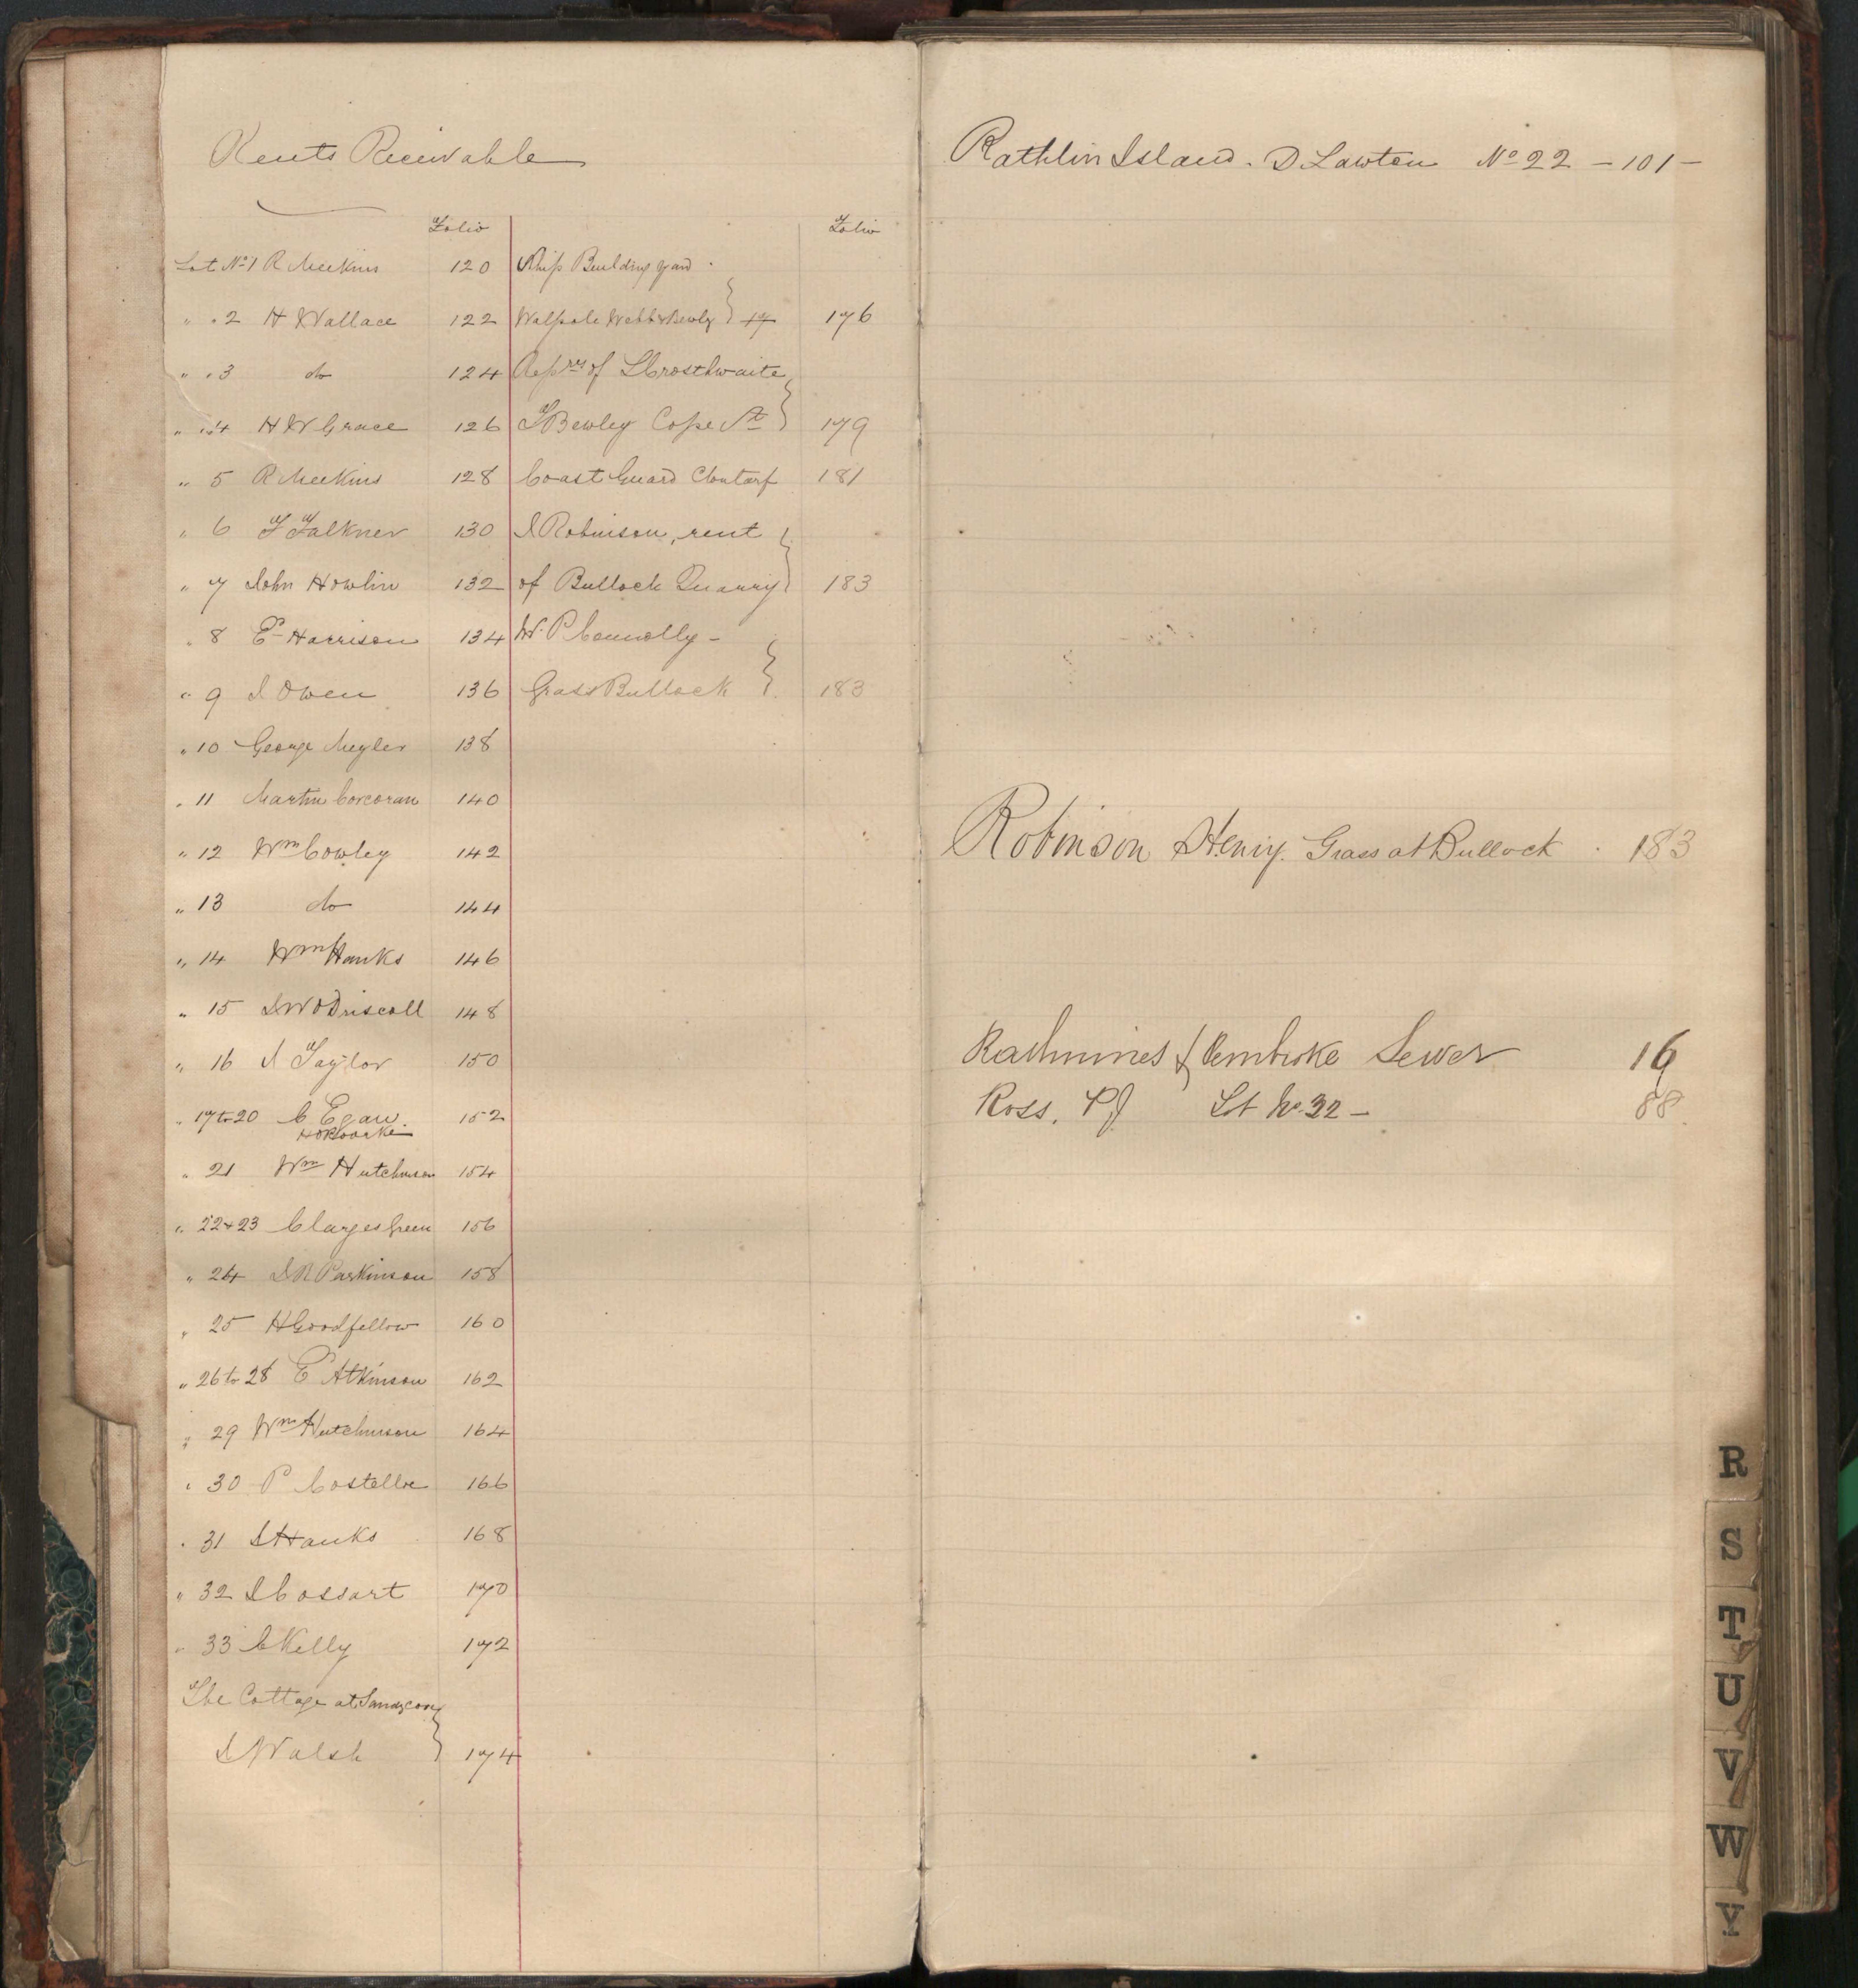 Rents Receivable
Folio
Lot No 1 R Meekins 120
" " 2 H Wallace 122
" " 3 do 124
" " 4 H W Grace 126
" 5 R Meekins 128
" 6 F Falkner 130
" 7 John Howlin 132
" 8 E Harrison 134
" 9 J Owen 136
" 10 George Meyler 138
" 11 Martin Corcoran 140
" 12 Wm Cowley 142
" 13 do 144
" 14 Wm Hanks 146
" 15 J W O Driscoll 148
" 16 J Taylor 150
" 17 to 20 C Egan 152
H O Rourke
" 21 Wm Hutchinson 154
" 22 + 23 Clarges Green 156
" 24 J R Parkinson 158
" 25 H Goodfellow 160
" 26 to 28 E Atkinson 162
" 29 Wm Hutchinson 164
" 30 P Costelloe 166
" 31 J Hanks 168
" 32 J Cossart 170
" 33 C Kelly 172
The Cottage at Sandycove
J Walsh 174
Folio
Ship Building Yard
Walpole Webb & Bewley 17 176
Reprs of L Crosthwaite
T Bewley Cope St 179
Coast Guard Clontarf 181
J Robinson, rent
of Bullock Quarry 183
W. P Connolly -
Grass Bullock 183
Rathlin Island. D Lawton No 22 - 101 -
Robinson Henry. Grass at Bullock . 183
Rathmines & Pembroke Sewer 16
Ross. P J Lt No 32 - 88
R
S
T
U
V
W
Y